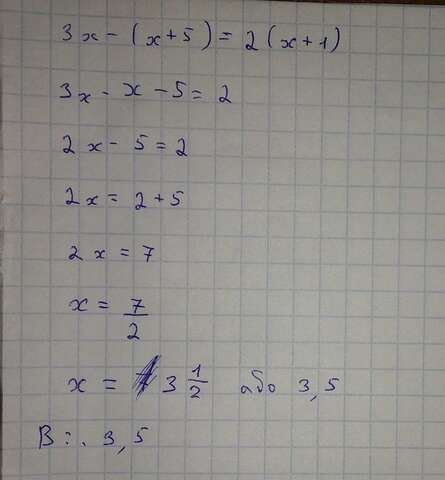 3x - (x+5) = 2(x+1)
3x - x - 5 = 2
2x - 5 = 2
2x = 2 + 5
2x = 7
x = 7/2
x = 3 1/2 або 3,5
В:. 3,5